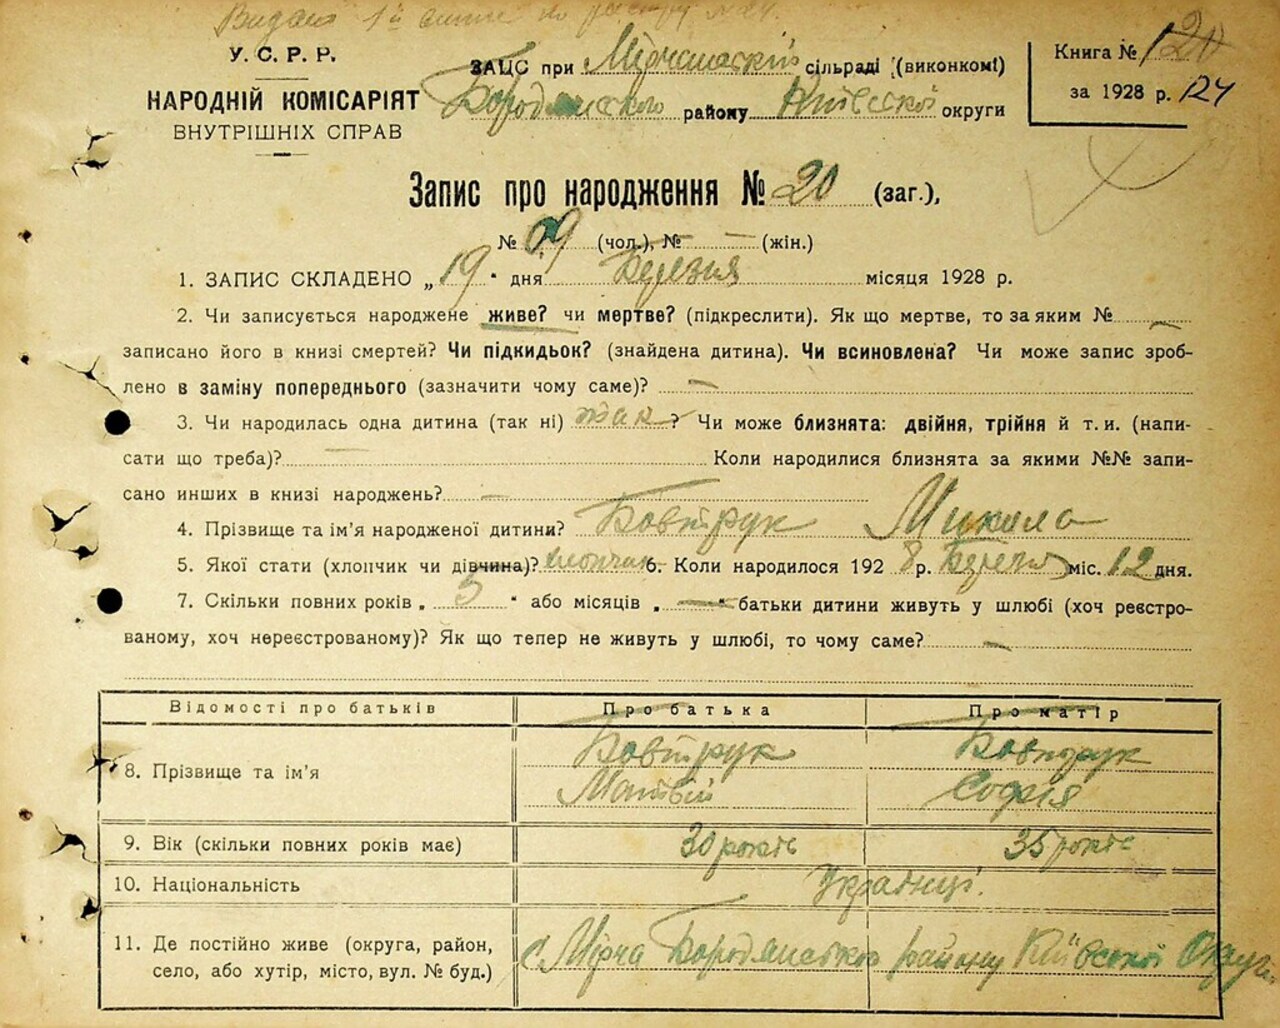 Видана 1й
У. С. Р. Р.
НАРОДНІЙ КОМІСАРІЯТ
ВНУТРІШНІХ СПРАВ
ЗАЦС при Мірчанській сільраді (виконкомі)
Бородянского району Київської округи
Книга № 120
за 1928 р. 124
Запис про народження № 20 (заг.),
№ 09 (чол.), № — (жін.)
1. ЗАПИС СКЛАДЕНО „ 19 " дня Березня місяця 1928 р.
2. Чи записується народжене живе? чи мертве? (підкреслити). Як що мертве, то за яким № —
записано його в книзі смертей? Чи підкидьок? (знайдена дитина). Чи всиновлена? Чи може запис зроб-
лено в заміну попереднього (зазначити чому саме)? —
3. Чи народилась одна дитина (так ні) так ? Чи може близнята: двійня, трійня й т. и. (напи-
сати що треба)? — Коли народилися близнята за якими №№ запи-
сано инших в книзі народжень? —
4. Прізвище та ім'я народженої дитини? Ковтрук Микола
5. Якої стати (хлопчик чи дівчина)? хлопчик 6. Коли народилося 192 8 р. Березня міс. 12 дня.
7. Скільки повних років „ 5 " або місяців „ — " батьки дитини живуть у шлюбі (хоч реєстро-
ваному, хоч нереєстрованому)? Як що тепер не живуть у шлюбі, то чому саме? —
Відомості про батьків Про батька Про матір
8. Прізвище та ім'я Ковтрук Ковтрук
Матвій Софія
9. Вік (скільки повних років має) 30 років 35 років
10. Національність Українці.
11. Де постійно живе (округа, район,
село, або хутір, місто, вул. № буд.)
с. Мірча Бородянського району Київської Округи